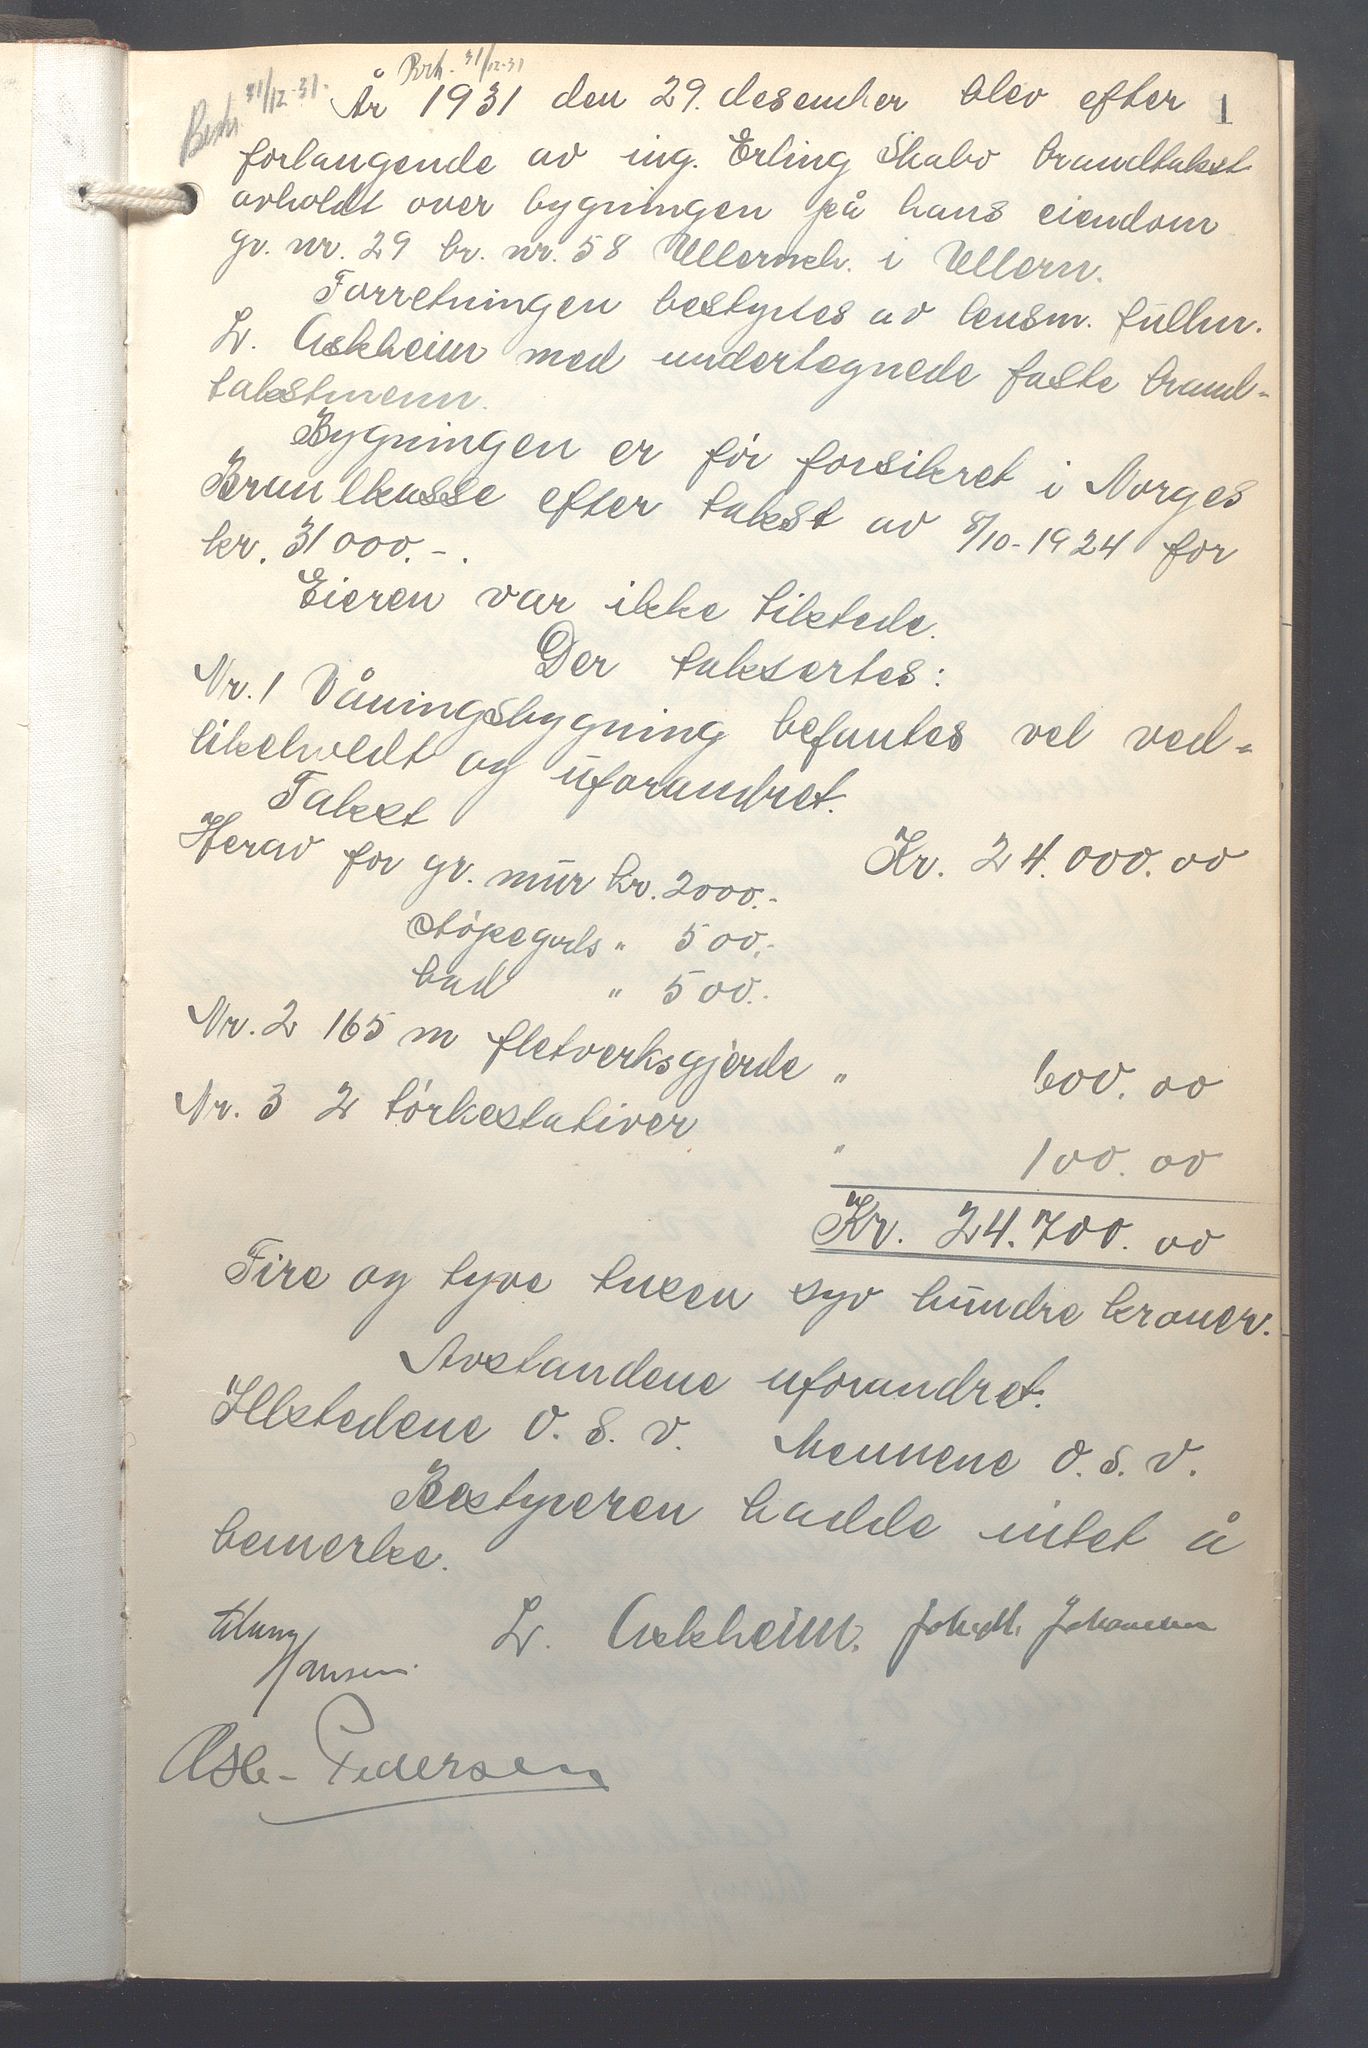 Brk. 31/12-31
31/12-31.
År 1931 den 29. desember blev efter 1
forlangende av ing. Erling Skabo brandtakst
avholdt over bygningen på hans eiendom
gr. nr. 29 br. nr. 58 Ullernch. i Ullern.
Forretningen bestyrtes av lensm. fullm.
L. Askheim med undertegnede faste brand-
takstmenn.
Bygningen er før forsikret i Norges
Brandkasse efter takst av 8/10-1924 for
kr. 31000.-.
Eieren var ikke tilstede.
Der taksertes:
Nr. 1 Våningsbygning befantes vel ved-
likeholdt og uforandret.
Takst Kr. 24.000.00
Herav for gr. mur kr. 2000.-
støpegods " 500.-
bad " 500.-
Nr. 2 165 m fletverksgjerde " 600.00
Nr. 3 2 tørkestativer " 100.00
Kr. 24.700.00
Fire og tyve tusen syv hundre kroner.
Avstandene uforandret.
Ildstedene o. s. v. Mennene o. s. v.
Bestyreren hadde intet å
bemerke.
L. Askheim. Johansen
Hansen.
Pedersen